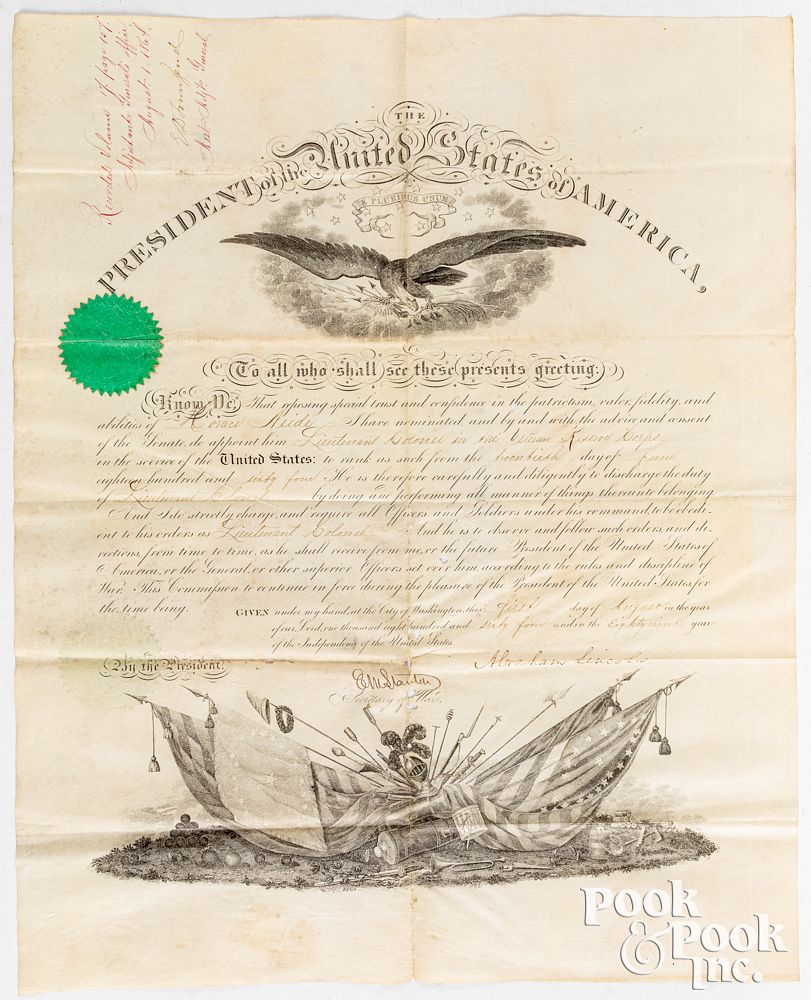 Recorded Volume 7 page 157
Adjutant General's Office
August 1, 1864.
E D Townsend
Asst Adjt General,
THE
PRESIDENT of the United States of AMERICA,
E PLURIBUS UNUM
To all who shall see these presents greeting:
Know Ye, That reposing special trust and confidence in the patriotism, valor, fidelity, and
abilities of Horace I have nominated and by and with the advice and consent
of the Senate, do appoint him Lieutenant Colonel in the Veteran Reserve Corps,
in the service of the United States: to rank as such from the twentieth day of June
eighteen hundred and sixty four. He is therefore carefully and diligently to discharge the duty
of Lieutenant Colonel by doing and performing all manner of things thereunto belonging.
And I do strictly charge, and require all Officers and Soldiers under his command, to be obedi-
ent to his orders as Lieutenant Colonel And he is to observe and follow such orders, and di-
rections, from time to time, as he shall receive from me, or the future President of the United States of
America, or the General, or other superior Officers set over him, according to the rules and discipline of
War. This Commission to continue in force during the pleasure of the President of the United States, for
the time being.
GIVEN under my hand, at the City of Washington, this first day of August in the year
of our Lord, one thousand eight hundred and sixty four and in the Eighty ninth year
of the Independence of the United States.
By the President.
Abraham Lincoln
E M Stanton
Secretary of War.
POOK
& POOK
INC.